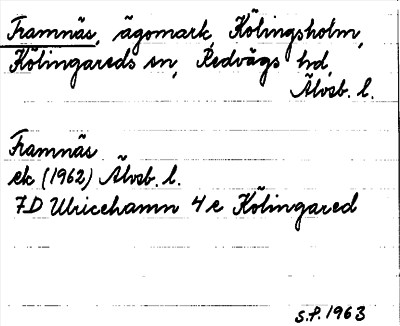 Framnäs, ägomark, Kölingsholm,
Kölingareds sn, Redvägs hd,
Älvsb. l.
Framnäs
ek (1962) Älvsb. l.
7D Ulricehamn 4 e Kölingared
S.P. 1963